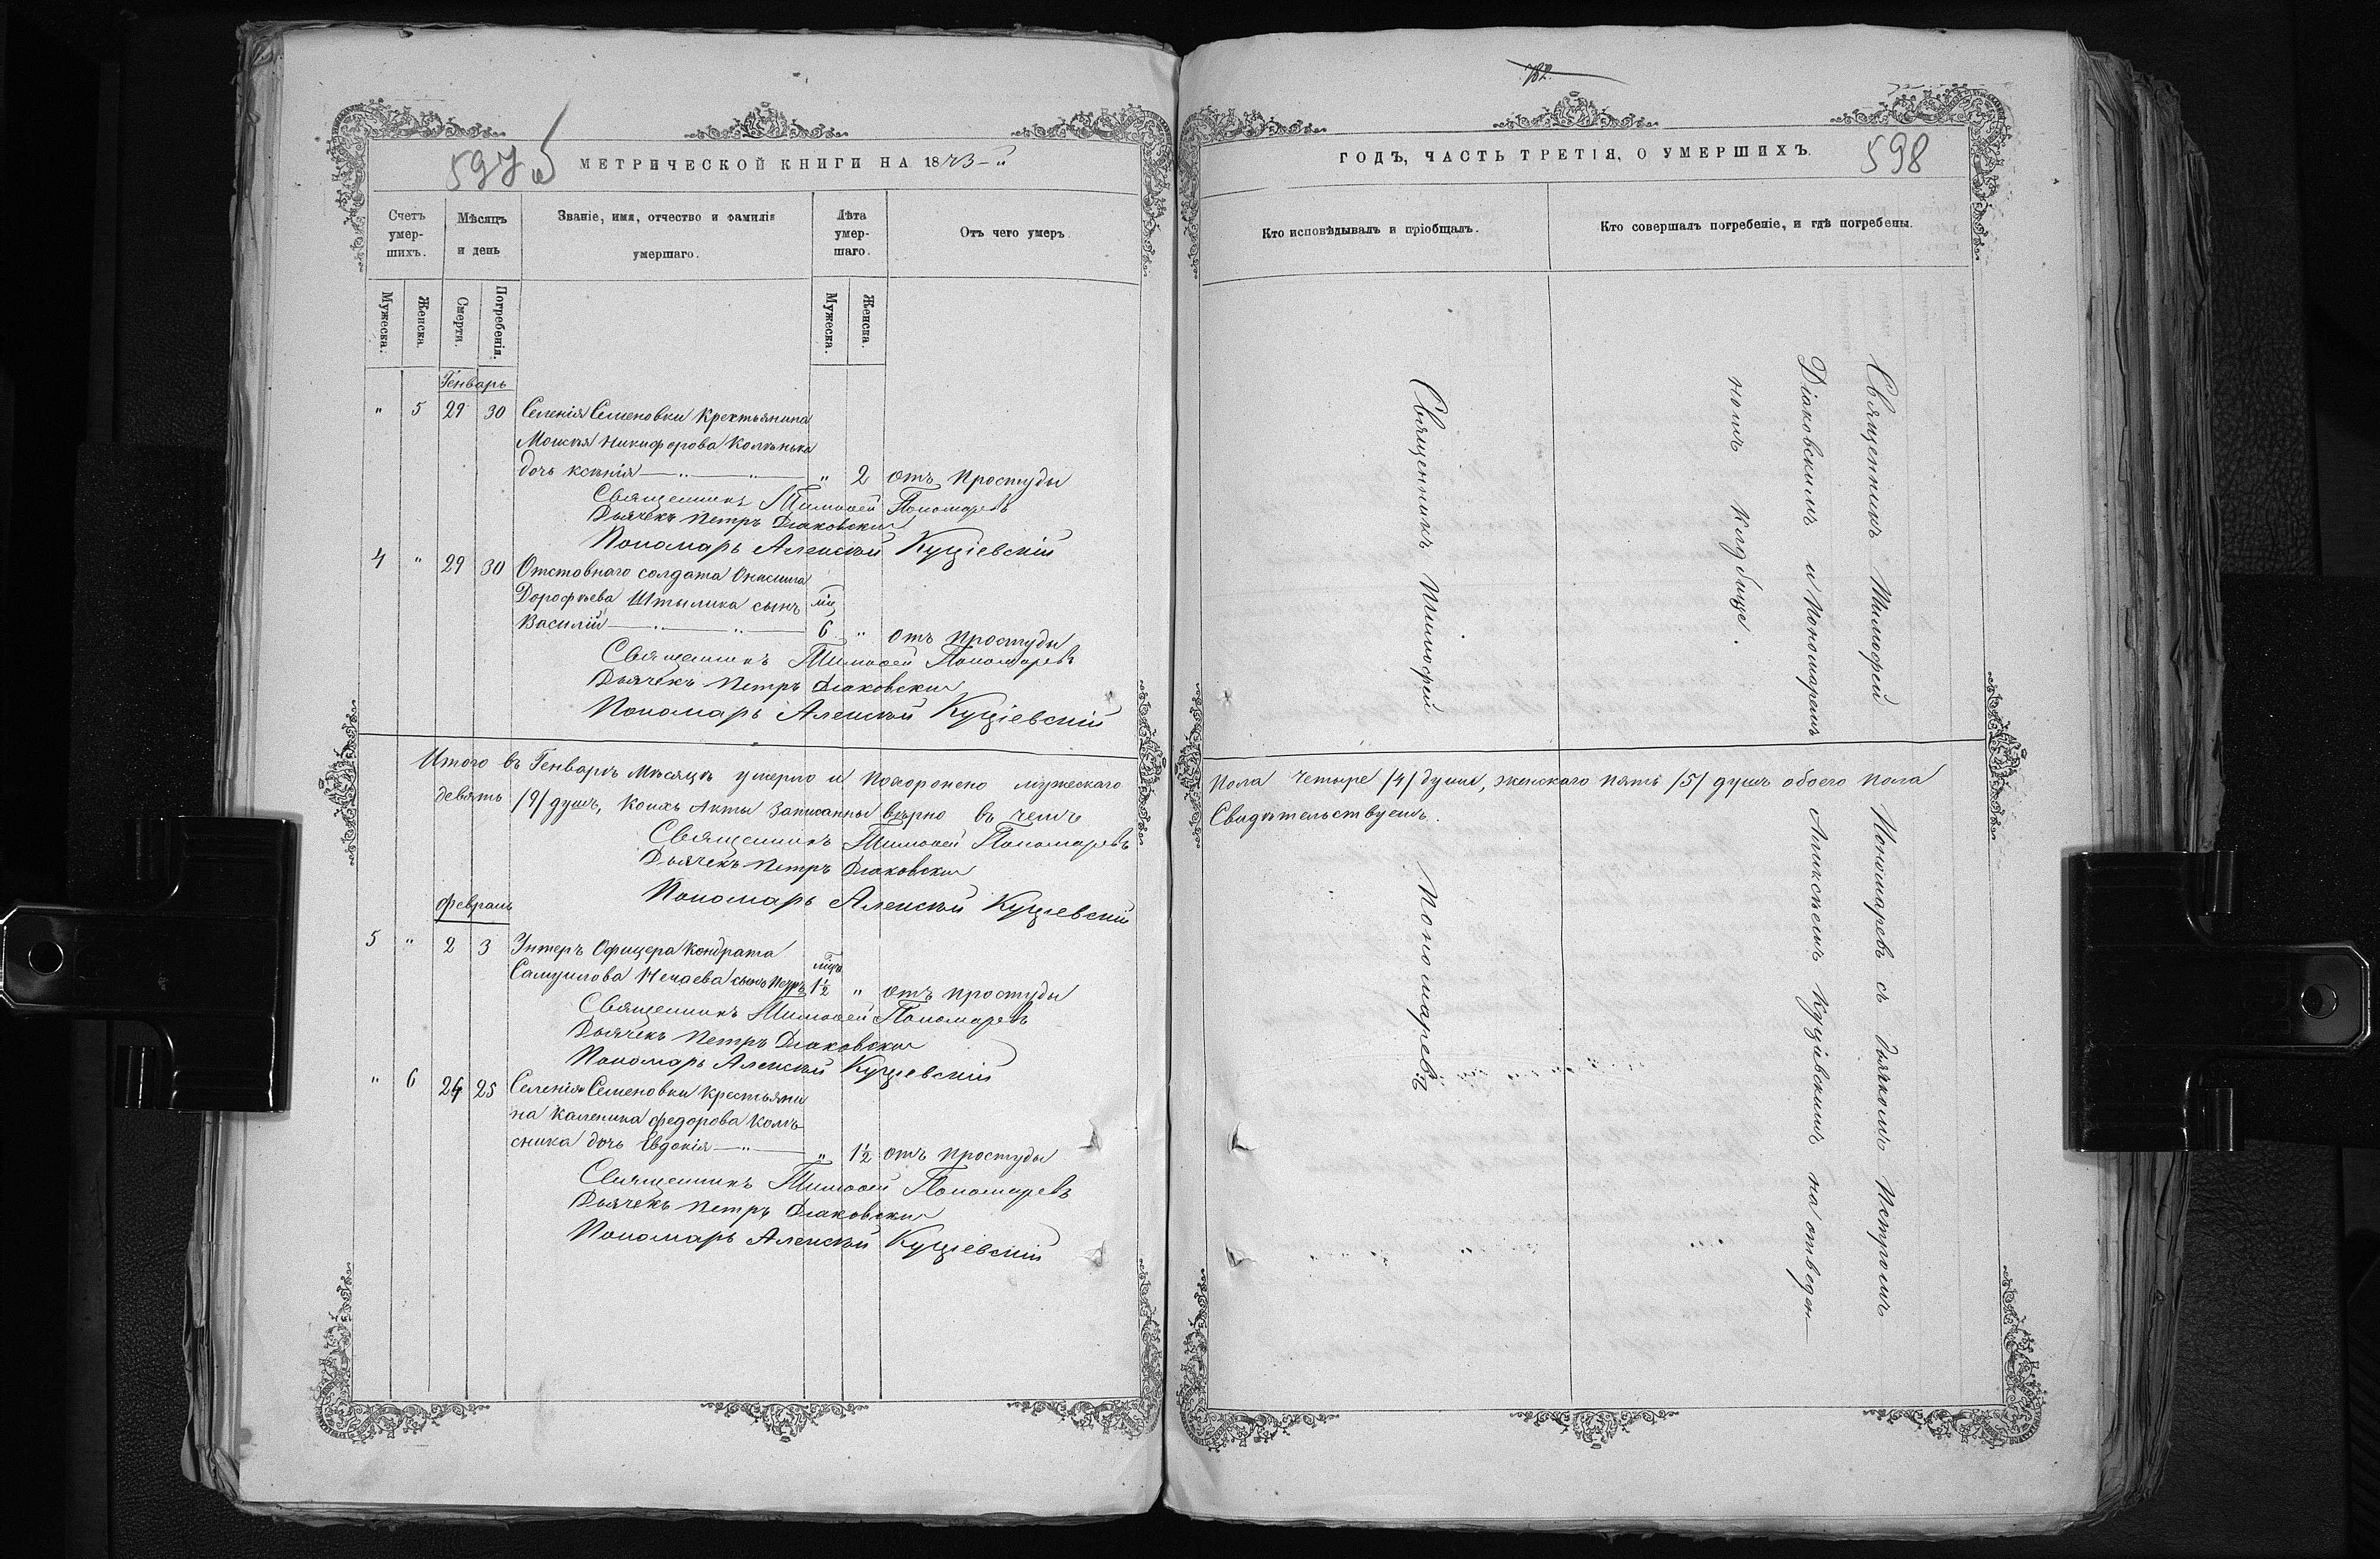 597 об
МЕТРИЧЕСКОЙ КНИГИ НА 1873-й
Счетъ умер-шихъ.
Мѣсяцъ и день
Званіе, имя, отчество и фамилія умершаго.
Лѣта умер-шаго.
Отъ чего умеръ
Мужеска.
Женска.
Смерти.
Погребенія.
Мужеска.
Женска.
Генварь
" 5 29 30 Селенія Семеновки Крестьянина
Моисея Никифорова Колѣнька
дочь Ксенія — " — " — " 2 отъ простуды
Священникъ Тимофей Пономаревъ
Дьячекъ Петръ Діаковскій
Пономарь Алексѣй Куціевскій
4 " 29 30 Отстовнаго солдата Онисима
Дорофѣева Штылика сынъ мц
Василій — " — " — 6 " отъ простуды
Священникъ Тимофей Пономаревъ
Дьячекъ Петръ Діаковскій
Пономарь Алексѣй Куціевскій
Итого въ Генварѣ Мѣсяцѣ умерло и похоронено мужескаго
девять /9/ душъ, коихъ Акты записанны вѣрно въ чемъ
Священникъ Тимофей Пономаревъ
Дьячекъ Петръ Діаковскій
Пономарь Алексѣй Куціевскій
февраль
5 " 2 3 Унтеръ Офицера Кондрата
Самуилова Нечаева сынъ Петръ мцъ 1½ " отъ простуды
Священникъ Тимофей Пономаревъ
Дьячекъ Петръ Діаковскій
Пономарь Алексѣй Куціевскій
" 6 24 25 Селенія Семеновки Крестьяни
на Каленика федорова Колѣ-
сника дочь Евдокія — " — " 1½ отъ простуды
Священникъ Тимофей Пономаревъ
Дьячекъ Петръ Діаковскій
Пономарь Алексѣй Куціевскій
598
ГОДЪ, ЧАСТЬ ТРЕТІЯ, О УМЕРШИХЪ.
Кто исповѣдывалъ и пріобщалъ.
Кто совершалъ погребеніе, и гдѣ погребены.
Священникъ Тимофей Пономаревъ
Священникъ Тимофей Пономаревъ съ дьячкомъ Петромъ
Діаковскимъ и Пономаремъ Аликсѣемъ Куціевскимъ на отведен—
номъ Кладбище.
Пола Четыре /4/ души, женскаго пять /5/ душъ обоего пола
Свидѣтельствуемъ.